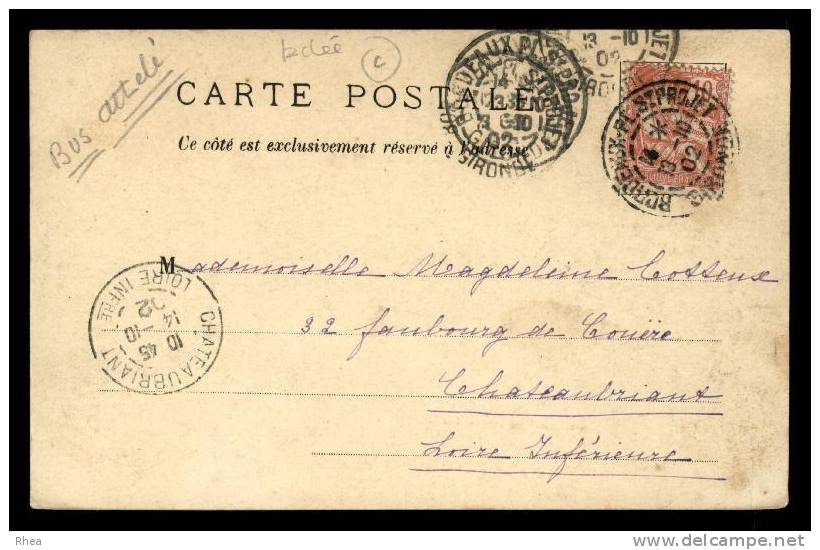 tachée
C
Bus attelé
CARTE POSTALE
Ce côté est exclusivement réservé à l'adresse
BORDEAUX PL. ST PROJET
13 -10
02
GIRONDE
BORDEAUX-PL. ST PROJET
13 -10
02
13 -10
02
10
Mademoiselle Magdeleine Cotteux
32 faubourg de Couëre
Chateaubriant
Loire Inférieure
CHATEAUBRIANT
10 45
14 -10
02
LOIRE INFRE
Rhea
delcampe.net